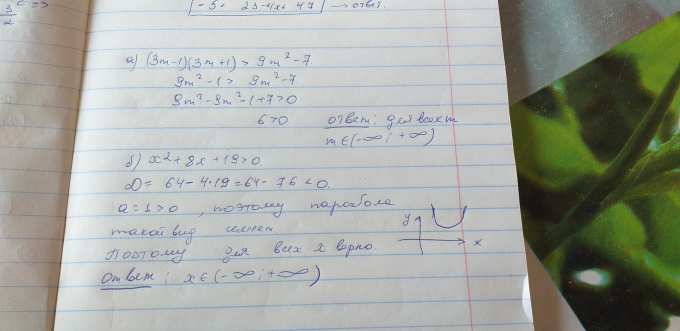 3/2 с =>
-5 < 23-4x < 47 → ответ.
а) (3m-1)(3m+1) > 9m²-7
9m²-1 > 9m²-7
9m²-9m²-1+7>0
6>0
ответ: для всех m
m∈(-∞; +∞)
б) x²+8x+19>0
D= 64-4·19=64-76<0.
a=1>0, поэтому парабола
такой вид имеет
y
x
Поэтому для всех x верно.
Ответ: x∈(-∞;+∞)